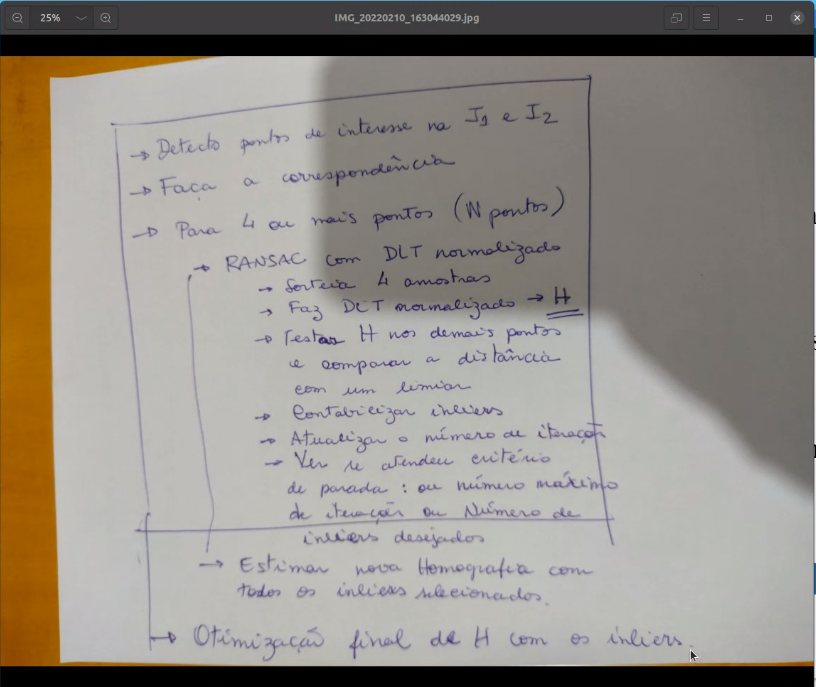 25%
IMG_20220210_163044029.jpg
→ Detecto pontos de interesse na I1 e I2
→ Faça a correspondência
→ Para 4 ou mais pontos (N pontos)
→ RANSAC com DLT normalizado
→ Sorteia 4 amostras
→ Faz DLT normalizado → H
→ Testar H nos demais pontos
e comparar a distância
com um limiar
→ Contabilizar inliers
→ Atualizar o número de iteração
→ Ver se atendeu critério
de parada : ou número máximo
de iteração ou Número de
inliers desejados
→ Estimar nova Homografia com
todos os inliers selecionados.
→ Otimização final de H com os inliers.